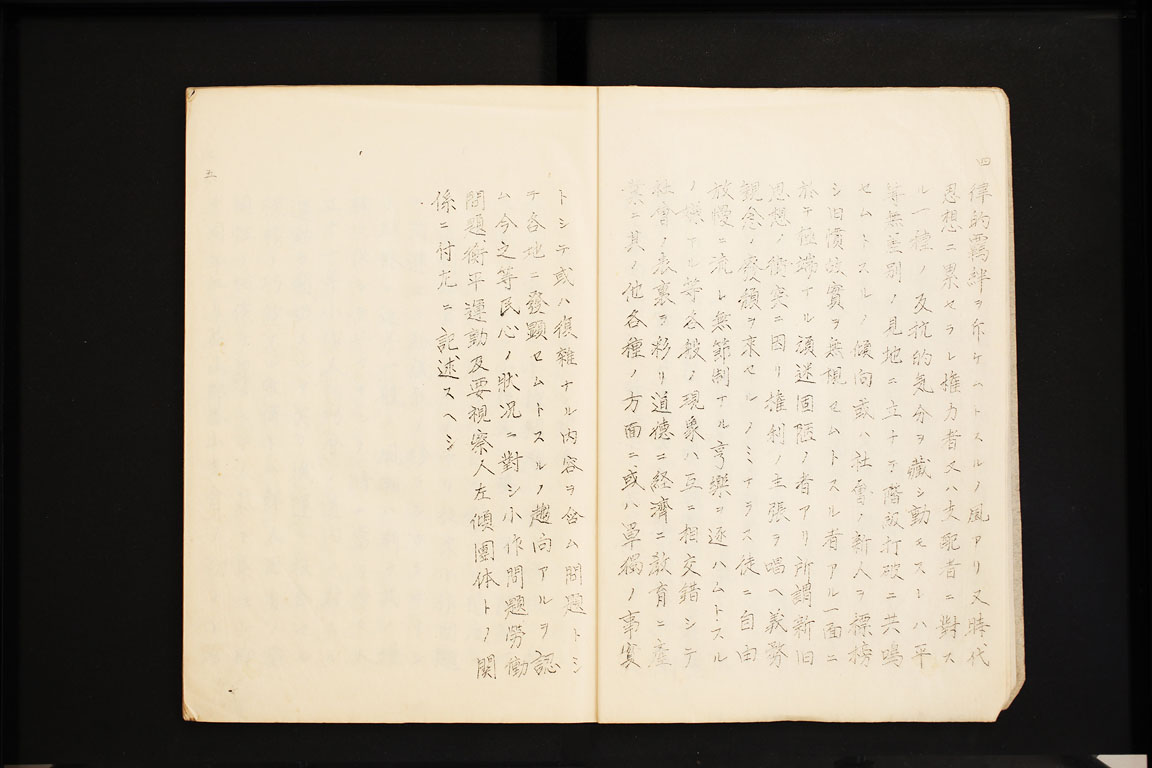 四
律的羈絆ヲ斥ケムトスルノ風アリ又時代
思想ニ累セラレ権力者又ハ支配者ニ對ス
ル一種ノ反抗的気分ヲ藏シ動モスレハ平
等無差別ノ見地ニ立チテ階級打破ニ共鳴
セムトスルノ傾向或ハ社會ノ新人ヲ標榜
シ旧慣故實ヲ無視セムトスル者アル一面ニ
於テ極端ナル頑迷固陋ノ者アリ所謂新旧
思想ノ衝突ニ因リ権利ノ主張ヲ唱ヘ義務
観念ノ廃頽ヲ来セルノミナラス徒ニ自由
放慢ニ流レ無節制ナル享樂ヲ逐ハムトスル
ノ様アル等各般ノ現象ハ互ニ相交錯シテ
社會ノ表裏ヲ彩リ道徳ニ経濟ニ教育ニ産
業ニ其ノ他各種ノ方面ニ或ハ單獨ノ事実
トシテ或ハ復雜ナル内容ヲ含ム問題トシ
テ各地ニ發顕セムトスルノ趨向アルヲ認
ム今之等民心ノ状况ニ對シ小作問題勞働
問題衡平運動及要視察人左傾團体トノ関
係ニ付尤ニ記述スヘシ
五